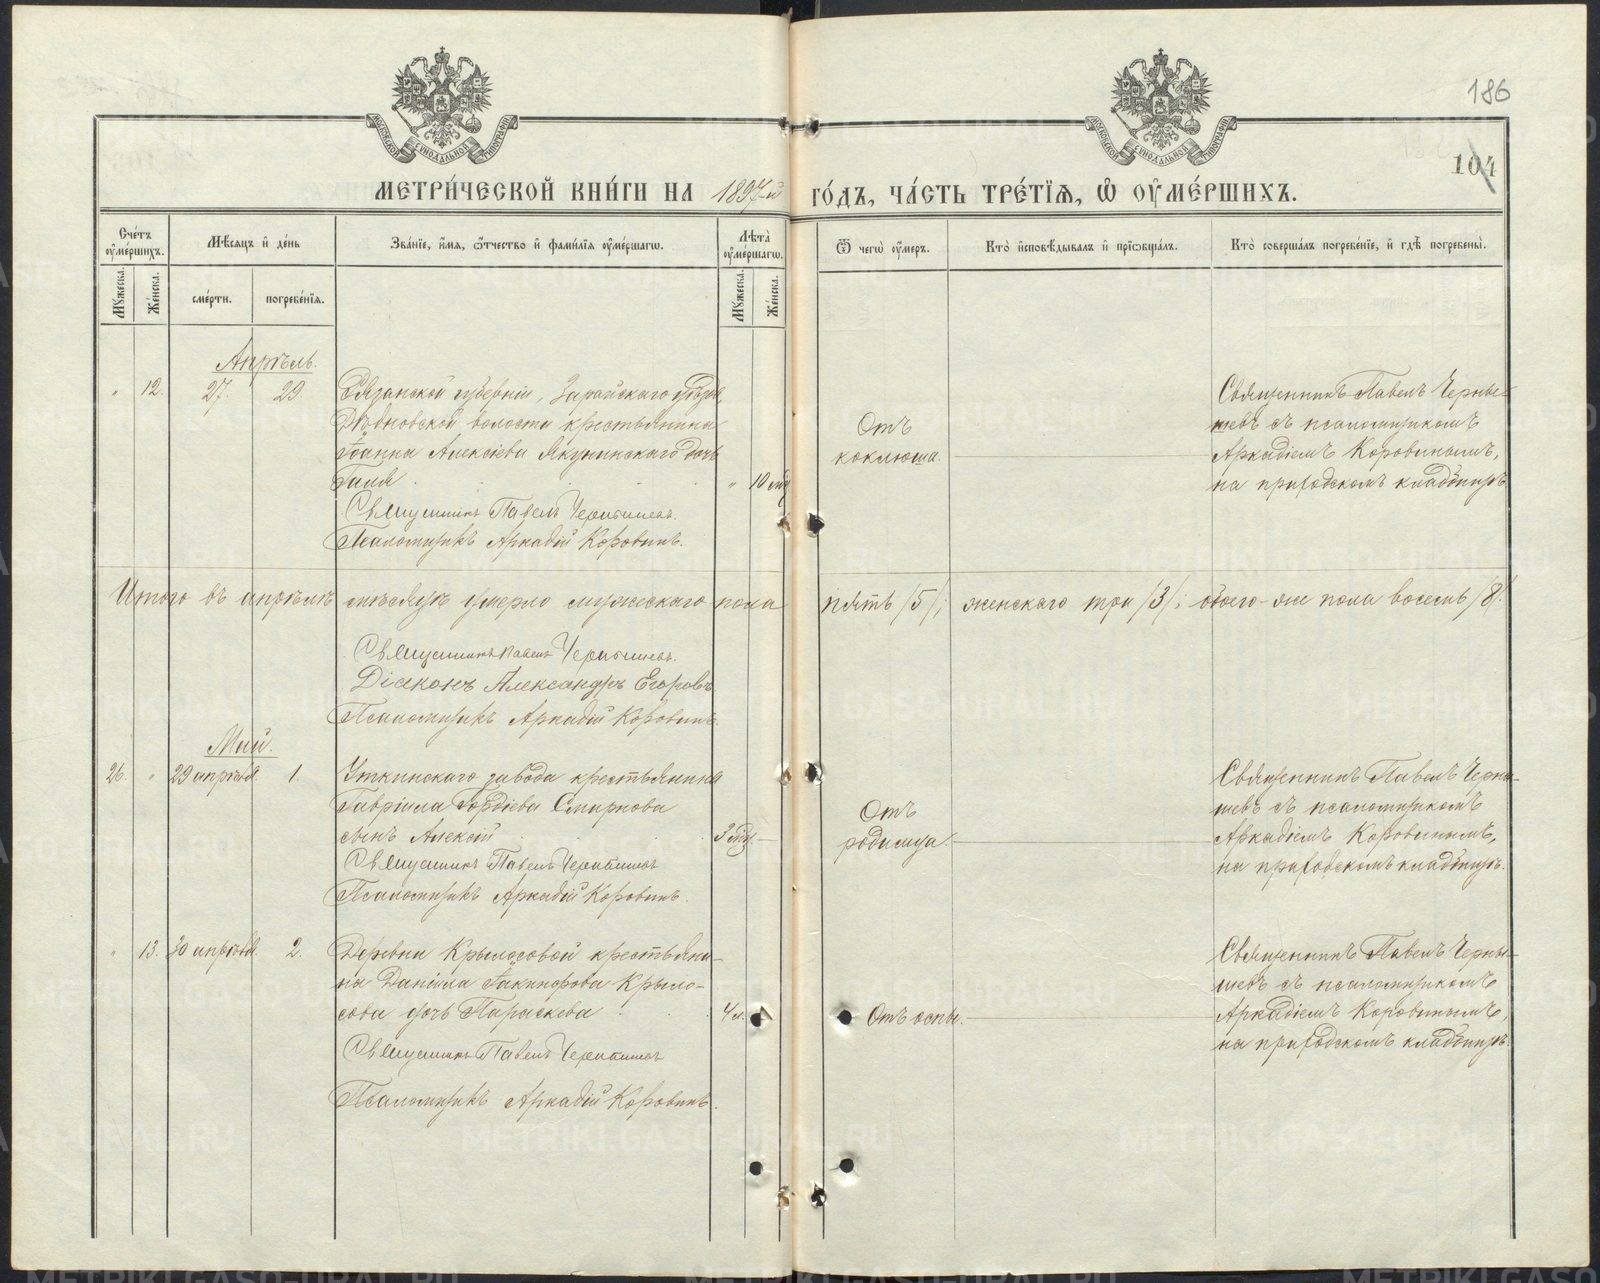 186
104
МОСКОВСКОЙ СѴНОДАЛЬНОЙ ТИПОГРАФІИ
МОСКОВСКОЙ СѴНОДАЛЬНОЙ ТИПОГРАФІИ
МЕТРИ́ЧЕСКОЙ КНИ́ГИ НА 1897-й ГО́ДЪ, ЧА́СТЬ ТРЕ́ТІѦ, Ѡ҆ ОУ҆МЕ́РШИХЪ.
Сче́тъ оу҆ме́ршихъ.
Мѣ́сѧцъ и҆ де́нь
Зва́нїе, и҆́мѧ, ѻ҆́тчество и҆ фами́лїѧ оу҆ме́ршагѡ.
Лѣта̀ оу҆ме́ршагѡ.
Ѿ чегѡ̀ оу҆́меръ.
Кто̀ и҆сповѣ́дывалъ и҆ прїѡбща́лъ.
Кто̀ соверша́лъ погребе́нїе, и҆ гдѣ̀ погребены̀.
Мꙋ́жеска.
Же́нска.
сме́рти.
погребе́нїѧ.
Мꙋ́жеска.
Же́нска.
Апрѣль.
" 12. 27. 29. Рязанской губерніи, Зарайскаго уѣзда
волости крестьянина
Іоанна Алексіева Якунинскаго дочь
" 10 мц
Священникъ Павелъ Чернышевъ.
Псаломщикъ Аркадій Коровинъ.
Отъ
коклюша.
Священникъ Павелъ Черны-
шевъ съ псаломщикомъ
Аркадіемъ Коровинымъ,
на приходскомъ кладбищѣ
Итого въ апрѣлѣ мѣсяцѣ умерло мужескаго пола пять /5/; женскаго три /3/; обоего-же пола восемь /8/.
Священникъ Павелъ Чернышевъ.
Діаконъ Александръ Егоровъ
Псаломщикъ Аркадій Коровинъ.
Май.
26. " 29 апрѣля. 1. Уткинскаго завода крестьянина
Гавріила Гордіева Смирнова
сынъ Алексій 3 мц. —
Священникъ Павелъ Чернышевъ
Псаломщикъ Аркадій Коровинъ.
Отъ
родимца.
Священникъ Павелъ Черны-
шевъ съ псаломщикомъ
Аркадіемъ Коровинымъ,
на приходскомъ кладбищѣ.
" 13. 30 апрѣля. 2. Деревни Крылосовой крестьяни-
на Даніила Іакинфова Крыло-
сова дочь Параскева 4 н.
Священникъ Павелъ Чернышевъ
Псаломщикъ Аркадій Коровинъ.
Отъ оспы.
Священникъ Павелъ Черны-
шевъ съ псаломщикомъ
Аркадіемъ Коровинымъ,
на приходскомъ кладбищѣ.
METRIKI.GASO-URAL.RU